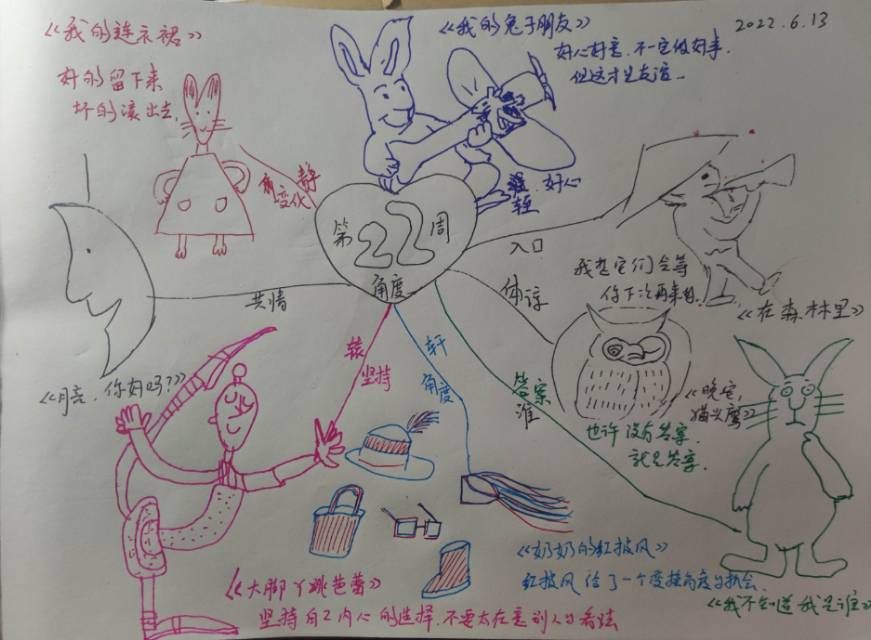 《我的连衣裙》
好的留下来
坏的滚出去
静
变化
《我的兔子朋友》
好心好意,不一定做好事,
但这才是友谊。
好心
2022.6.13
第22周
角度
入口
《在森林里》
体谅
我想它们会等
你下次再来的
《晚安,
猫头鹰》
共情
《月亮,你好吗?》
坚持
轩
角度
答案
谁
也许没有答案
就是答案.
《我不知道我是谁》
《奶奶的红披风》
红披风给了一个变换角度的机会
《大脚丫跳芭蕾》
坚持自己内心的选择,不要太在意别人的看法